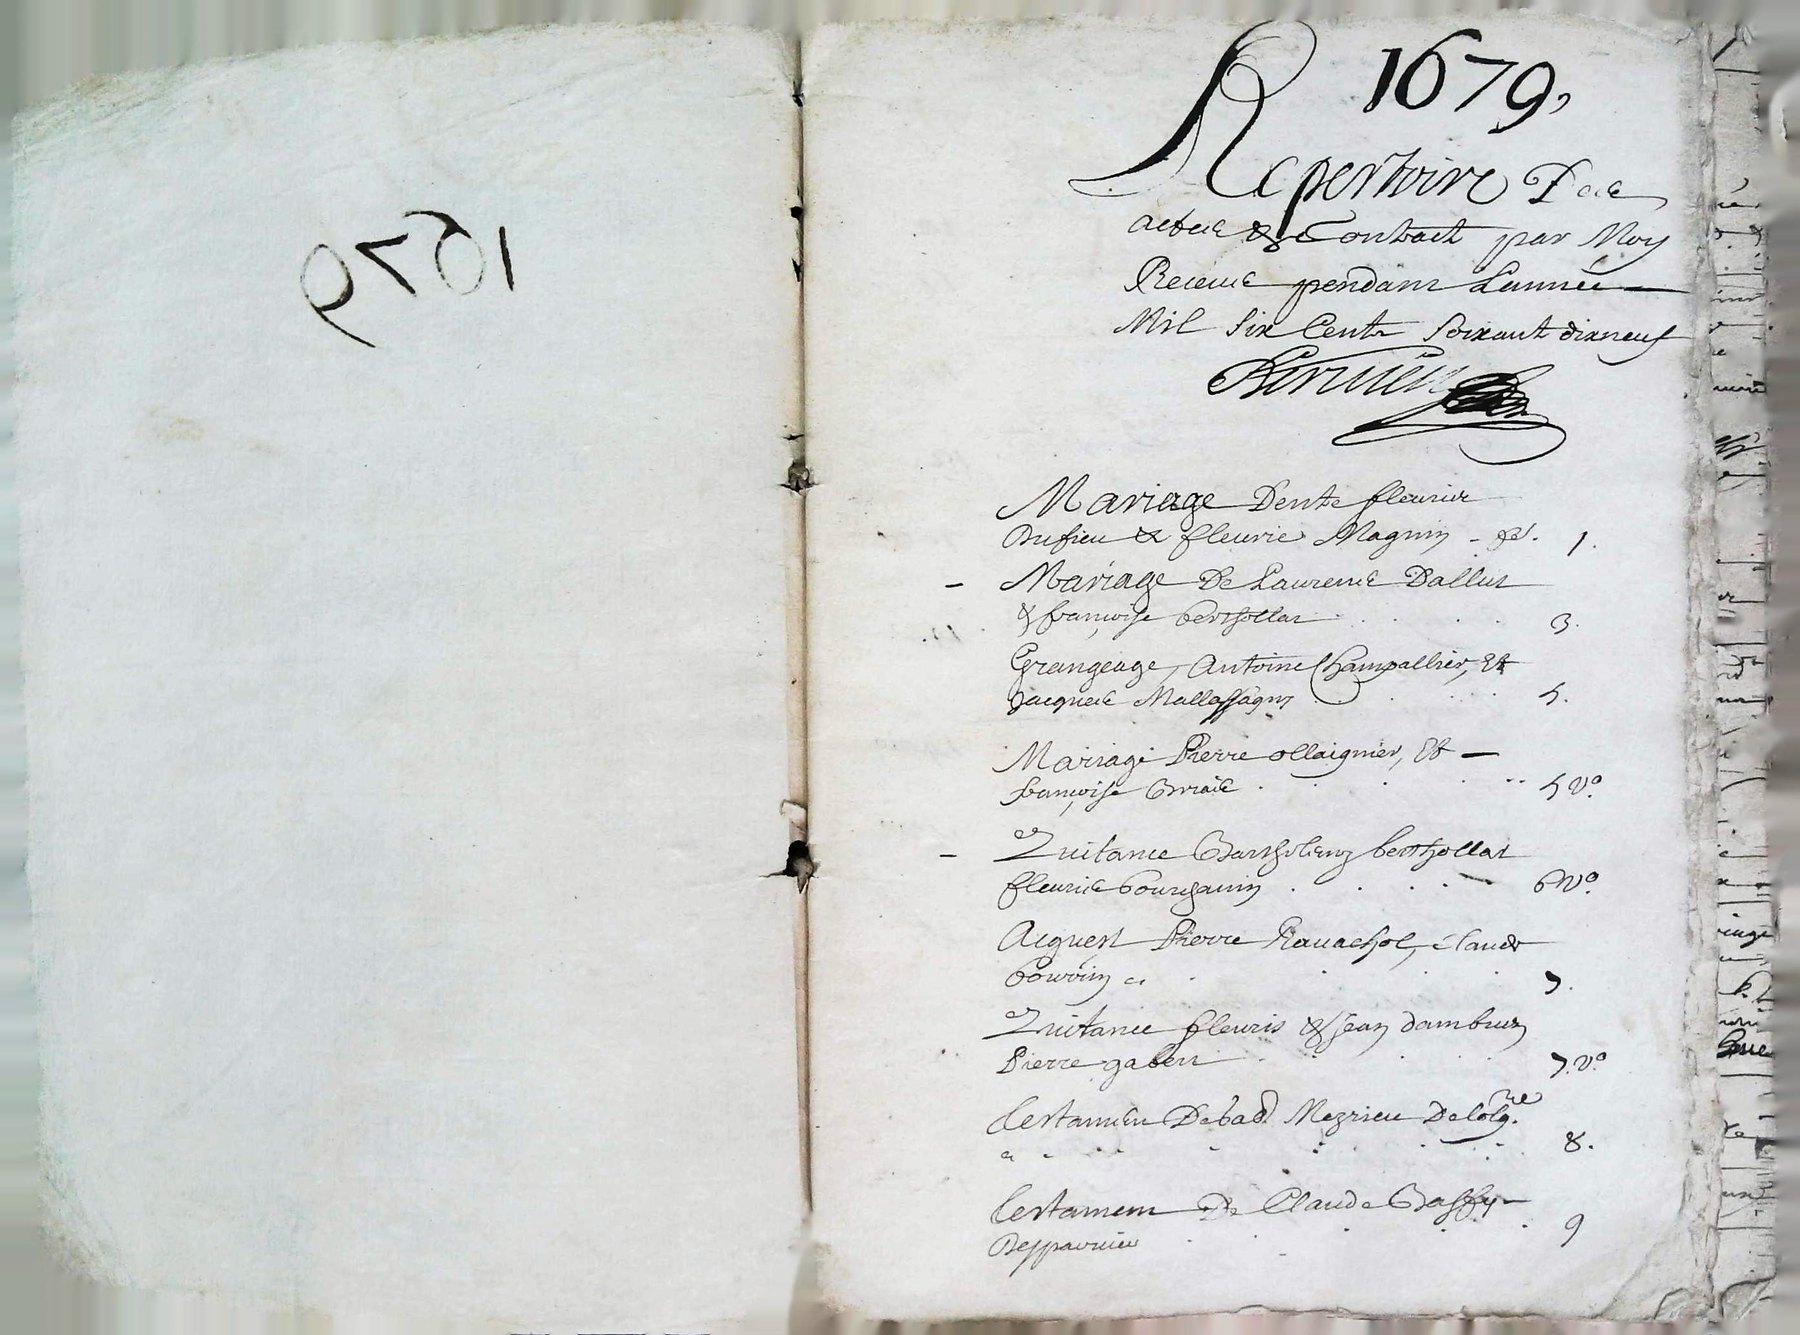 1679
1679,
Repertoire Des
actes & Contract par Moy
Receus pendant Lannée
Mil six Cents soixante dixneuf
Mariage D'entre fleurie
Dufieu & fleurie Magnin - fol. 1.
- Mariage De Laurence Dallut
& françoise berthollat 3.
Grangeage, Antoine Champallier, Et
Jacques Mallassagny 5.
Mariage Pierre ollaignier, Et
françoise 5 v°.
- Quitance Barthelemy berthollat
fleurie bourganin 6 v°.
Acquest Pierre Rauachol, claude
7.
Quitance fleuris & jean dambuin
Pierre gabert 7. v°
Testamen De bad. Mezrieu
8.
Testament De Claude Bassy
9